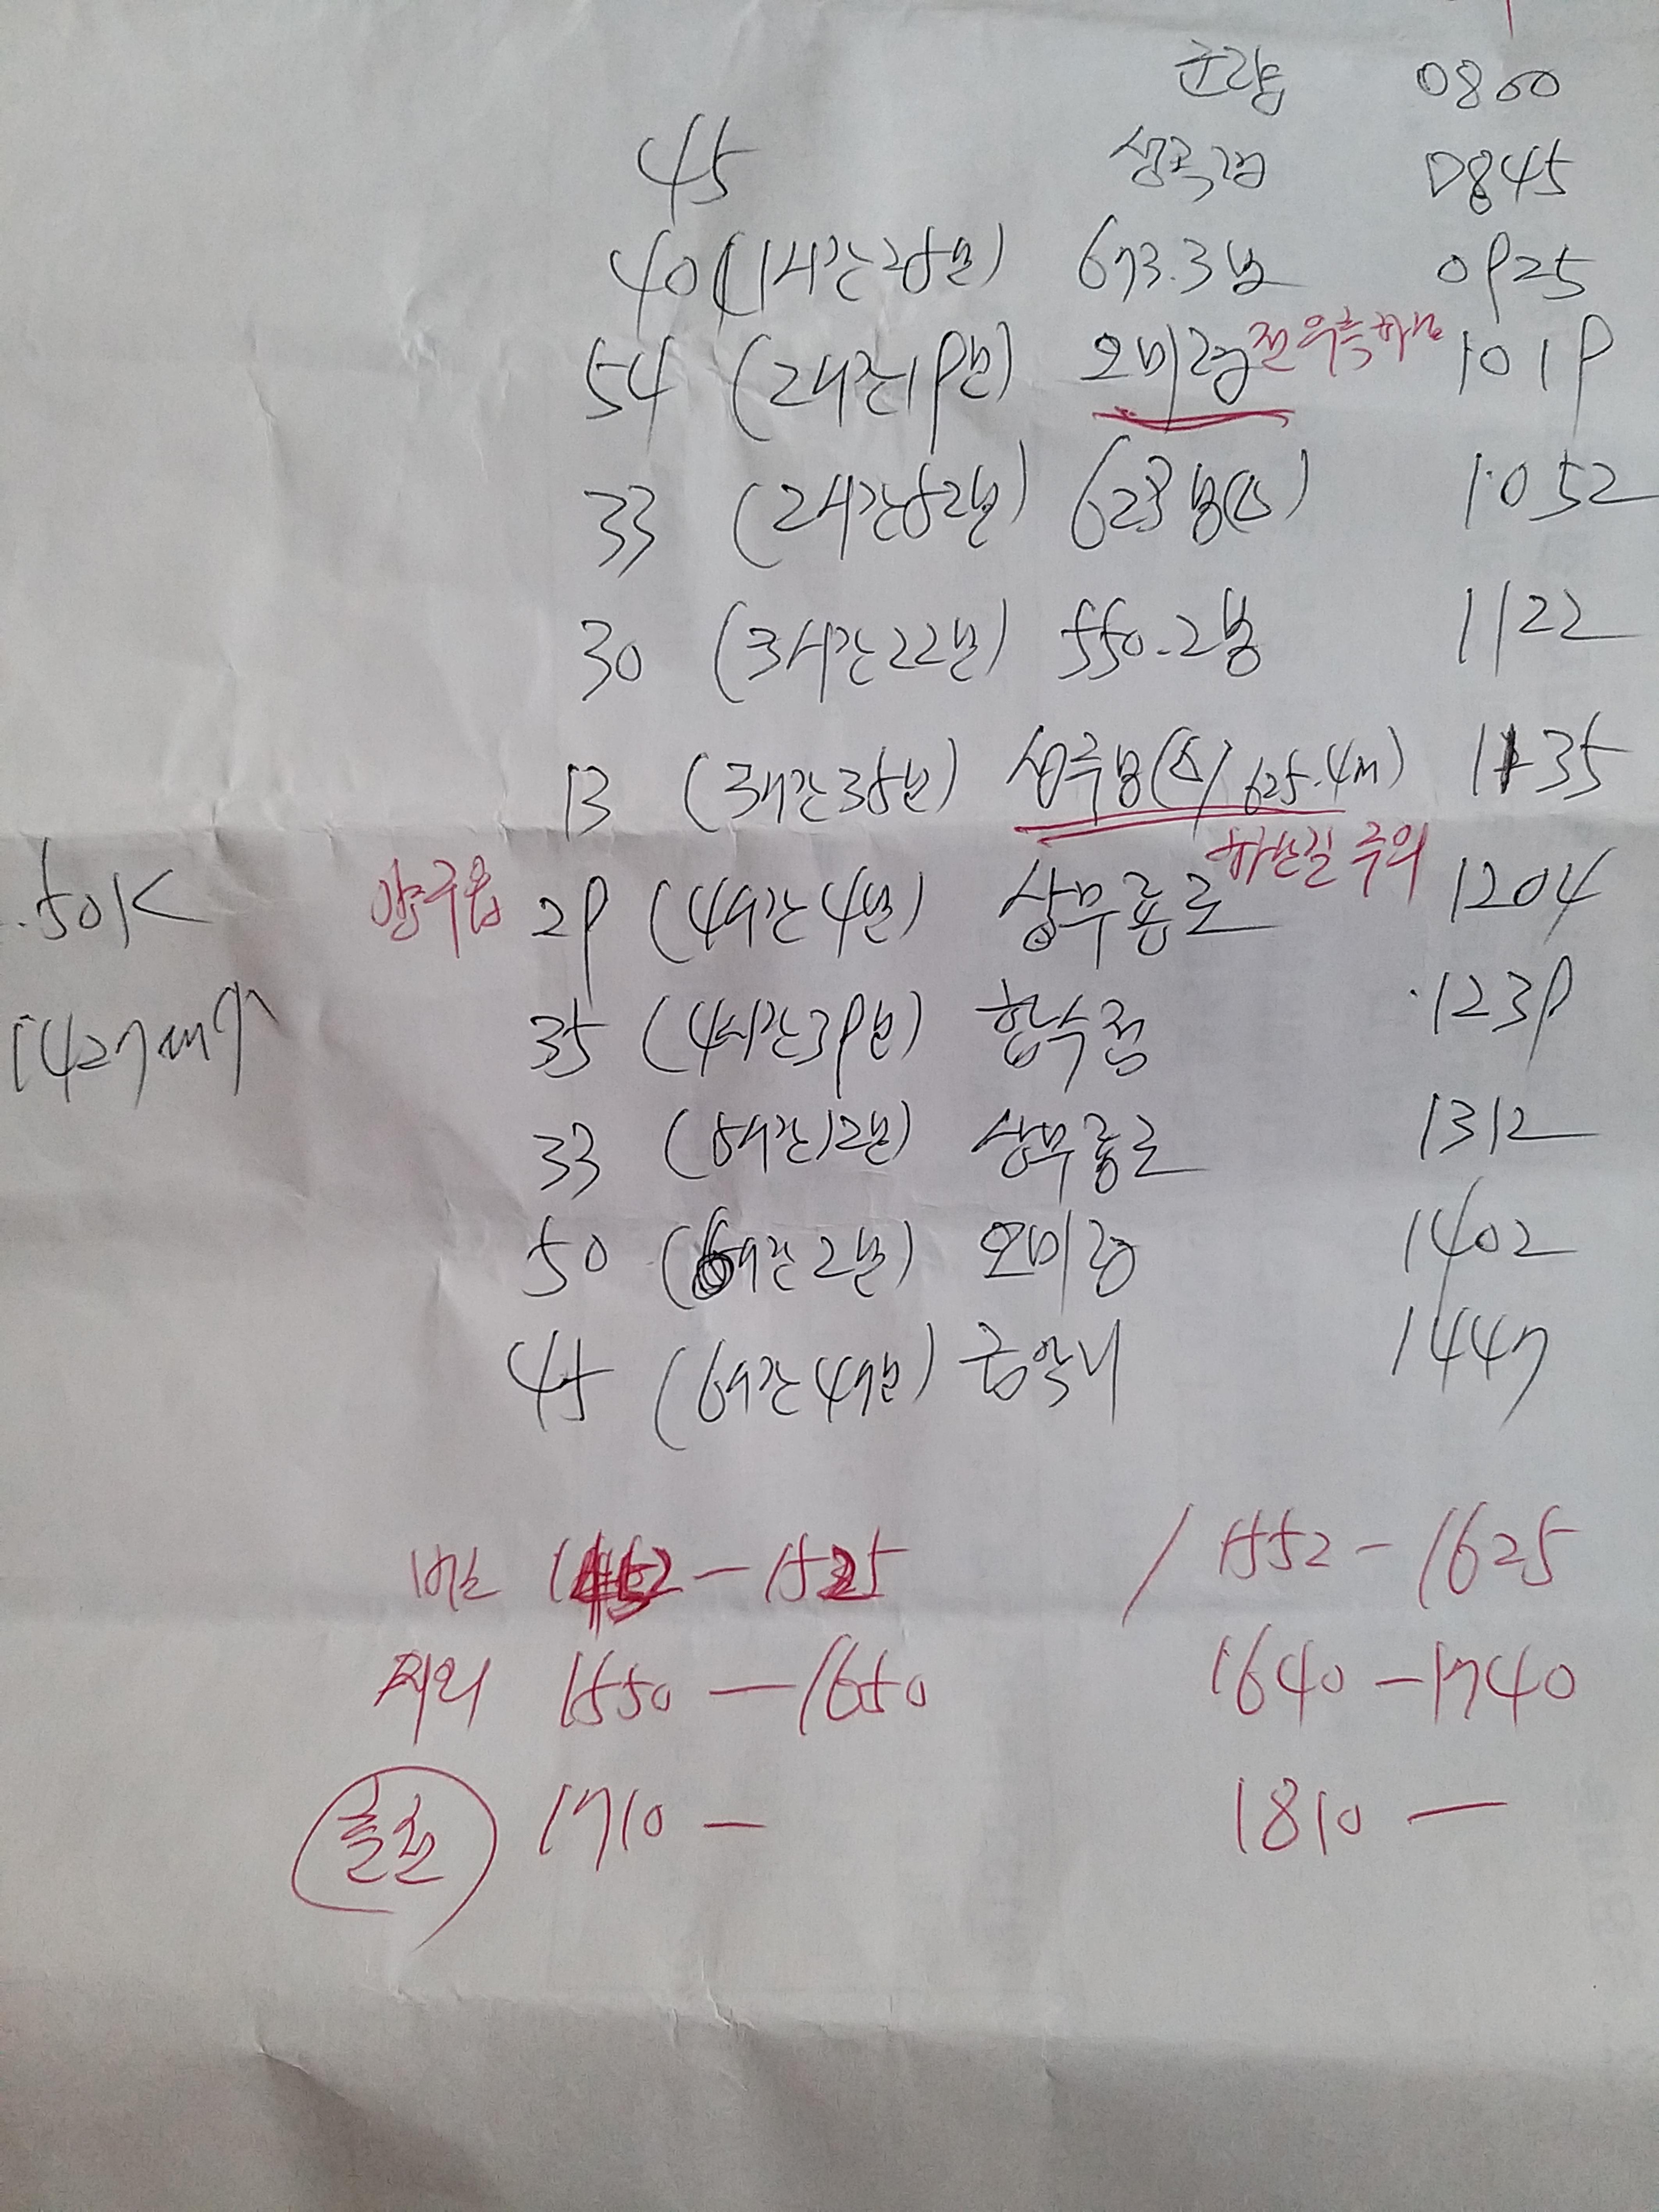 0800
45 성곡령 0845
40 (1시간25분) 673.3봉 0925
54 (2시간19분) 오미령 전 우측하산 1019
33 (2시간52분) 623봉(△) 1052
30 (3시간22분) 550.2봉 1122
13 (3시간35분) 성주봉(△/625.4m) 1135
하산길 주의
50K 양구읍 29 (4시간4분) 상무룡로 1204
35 (4시간39분) 합수점 1239
33 (5시간12분) 상무룡로 1312
50 (6시간2분) 오미령 1402
45 (6시간47분) 금악리 1447
버스 1452 – 1525 / 1552 – 1625
1550 – 1650 1640 – 1740
출발 1710 – 1810 –